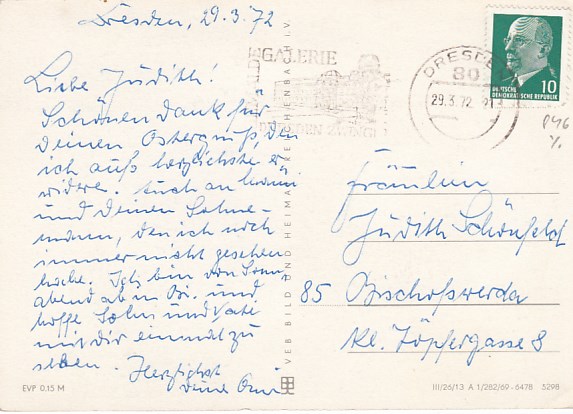 Dresden, 29.3.72
Liebe Judith!
Schönen Dank für
Deinen Ostergruß, den
ich aufs herzlichste er-
widere. Auch an
und Deinen
mann, den ich noch
immer nicht gesehen
habe. Ich bin von Sonn-
abend ab in Bi. und
hoffe Sohn und Vater
mit Dir einmal zu
sehen. Herzlichst
Deine Omi
GALERIE
DRESDEN ZWINGER
DRESDEN
80
29.3.72
10
DEUTSCHE
DEMOKRATISCHE REPUBLIK
P46
Fräulein
Judith Schönfeld
85 Bischofswerda
Kl. Töpfergasse 8
VEB BILD UND HEIMAT REICHENBACH I.V.
EVP 0,15 M
III/26/13 A 1/282/69-6478 5298